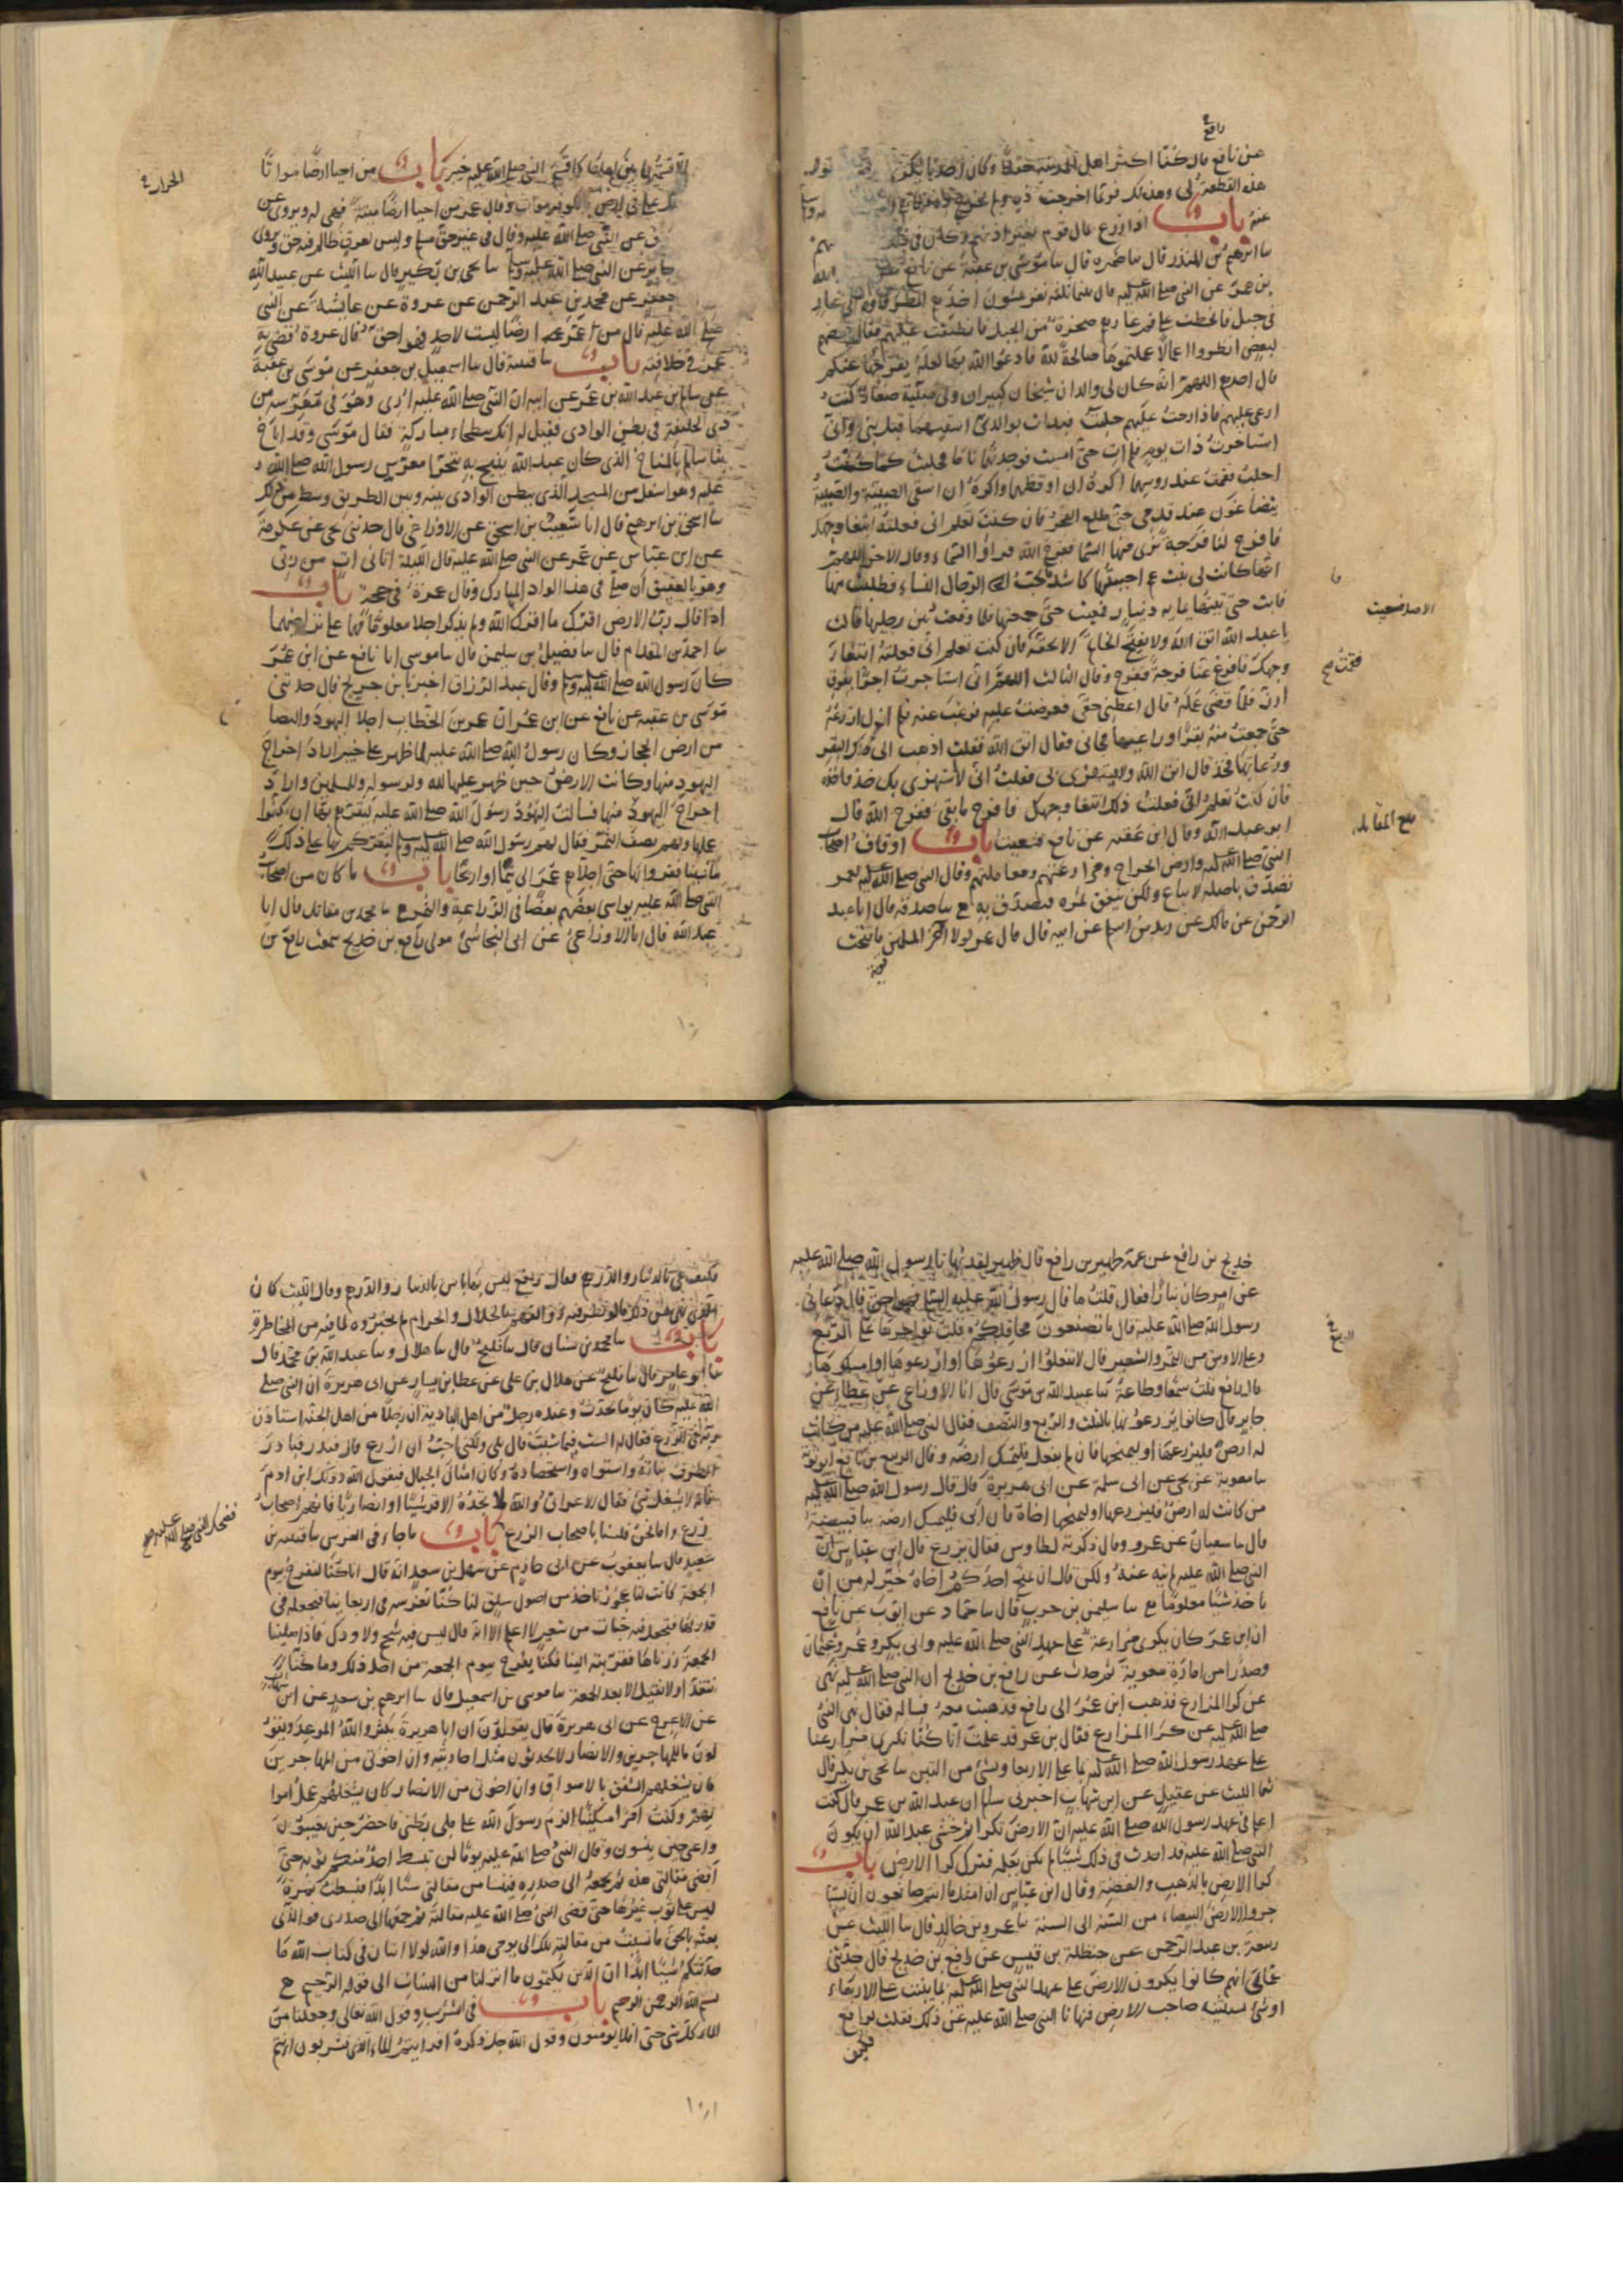 رافع
عن نافع قال كنا اكثر اهل المدينة حقلا وكان احدنا يكرى
هذه القطعة لى وهذه لك فربما اخرجت ذه ولم تخرج ذه
باب اذا زرع بمال قوم بغير اذنهم وكان فى ذلك
سا ابرهيم بن المنذر قال سا ضمره قال سا موسى بن عقبة عن نافع
بن عمر عن النبى صلى الله عليه قال بينما ثلثة نفر يمشون اخذهم المطر فاووا الى غار
فى جبل فانحطت على فم غارهم صخرة من الجبل فانطبقت عليهم فقال بعضهم
لبعض انظروا اعمالا عملتموها صالحة لله فادعوا الله بها لعله يفرجها عنكم
قال احدهم اللهم انه كان لى والدان شيخان كبيران ولى صبية صغار كنت
ارعى عليهم فاذا رحت عليهم حلبت فبدات بوالدى اسقيهما قبل بنى وانى
استاخرت ذات يوم فلم ات حتى امسيت فوجدتهما ناما فحلبت كما كنت
احلب فقمت عند روسهما اكره ان اوقظهما واكره ان اسقى الصبية والصبية
يتضاغون عند قدمى حتى طلع الفجر فان كنت تعلم انى فعلته ابتغا وجهك
فافرج لنا فرجة نرى منها السما ففرج الله فراوا السماء وقال الاخر اللهم
انها كانت لى بنت عم احببتها كاشد ما يحب الرجال النساء فطلبت منها
فابت حتى اتيتها بمايه دينار فبغيت حتى جمعتها فلما وقعت بين رجليها قالت
يا عبد الله اتق الله ولا تفتح الخاتم الا بحقه فان كنت تعلم انى فعلته ابتغا
وجهك فافرج عنا فرجة ففرج وقال الثالث اللهم انى استاجرت اجيرا بفرق
ارز فلما قضى عمله قال اعطنى حقى فعرضت عليه فرغب عنه فلم ازل ازرعه
حتى جمعت منه بقرا وراعيها فجانى فقال اتق الله فقلت اذهب الى ذلك البقر
ورعاتها فخذ قال اتق الله ولا تستهزى بى فقلت انى لا استهزى بك فخذ فاخذه
فان كنت تعلم انى فعلت ذلك ابتغا وجهك فافرج ما بقى ففرج الله قال
ابو عبد الله وقال ابن عقبه عن نافع فسعيت باب اوقاف اصحاب
النبى صلى الله عليه وارض الخراج ومزارعتهم ومعاملتهم وقال النبى صلى الله عليه لعمر
تصدق باصله لا يباع ولكن ينفق ثمره فتصدق به سا صدقه قال انا عبد
الرحمن عن مالك عن زيد بن اسلم عن ابيه قال قال عمر لولا اخر المسلمين ما فتحت
قرية
الاصل فبغيت
فقمت صح
بلغ المقابله
الا قسمتها بين اهلها كما قسم النبى صلى الله عليه خيبر باب من احيا ارضا مواتا
وقال عمر من احيا ارضا ميتة فهى له ويروى عن
عن النبى صلى الله عليه وقال فى غير حق مسلم وليس لعرق ظالم فيه حق ويروى
جابر عن النبى صلى الله عليه وسلم سا يحيى بن بكير قال سا الليث عن عبيد الله
جعفر عن محمد بن عبد الرحمن عن عروة عن عايشة عن النبى
صلى الله عليه قال من اعمر ارضا ليست لاحد فهو احق قال عروة قضى به
عمر فى خلافته باب سا قتيبة قال سا اسمعيل بن جعفر عن موسى بن عقبة
عن سالم بن عبد الله بن عمر عن ابيه ان النبى صلى الله عليه ارى وهو فى معرسه من
ذى الحليفة فى بطن الوادى فقيل له انك ببطحاء مباركة فقال موسى وقد اناخ
بنا سالم بالمناخ الذى كان عبد الله ينيخ به يتحرا معرس رسول الله صلى الله
عليه وهو اسفل من المسجد الذى ببطن الوادى بينه وبين الطريق وسط من ذلك
سا اسحق بن ابرهيم قال انا شعيب بن اسحق عن الاوزاعى قال حدثنى يحيى عن عكرمة
عن ابن عباس عن عمر عن النبى صلى الله عليه قال الليلة اتانى ات من ربى
وهو بالعقيق ان صل فى هذا الواد المبارك وقال عمرة فى حجة باب
اذا قال رب الارض اقرك ما اقرك الله ولم يذكر اجلا معلوما فهما على تراضيهما
سا احمد بن المقدام قال سا فضيل بن سليمن قال سا موسى انا نافع عن ابن عمر
كان رسول الله صلى الله عليه وسلم وقال عبد الرزاق اخبرنا بن جريج قال حدثنى
موسى بن عقبه عن نافع عن ابن عمر ان عمر بن الخطاب اجلا اليهود والنصا
من ارض الحجاز وكان رسول الله صلى الله عليه لما ظهر على خيبر اراد اخراج
اليهود منها وكانت الارض حين ظهر عليها لله ولرسوله وللمسلمين واراد
اخراج اليهود منها فسالت اليهود رسول الله صلى الله عليه ليقرهم بها ان يكفوا
عملها ولهم نصف الثمر فقال لهم رسول الله صلى الله عليه وسلم نقركم بها على ذلك
ما شينا فقروا بها حتى اجلاهم عمر الى تيما واريحا باب ما كان من اصحاب
النبى صلى الله عليه يواسى بعضهم بعضا فى الزراعة والثمرة سا محمد بن مقاتل قال انا
عبد الله قال انا الاوزاعى عن ابى النجاشى مولى رافع بن خديج سمعت رافع بن
خديج بن رافع عن عمه ظهير بن رافع قال ظهير لقد نهانا رسول الله صلى الله عليه
عن امر كان بنا رافقا قلت ما قال رسول الله صلى الله عليه فهو حق قال دعانى
رسول الله صلى الله عليه قال ما تصنعون بمحاقلكم قلت نواجرها على الربع
وعلى الاوسق من التمر والشعير قال لا تفعلوا ازرعوها او ازرعوها او امسكوها
قال رافع قلت سمعا وطاعة سا عبيد الله بن موسى قال انا الاوزاعى عن عطاء عن
جابر قال كانوا يزرعونها بالثلث والربع والنصف فقال النبى صلى الله عليه من كانت
له ارض فليزرعها او ليمنحها فان لم يفعل فليمسك ارضه وقال الربيع بن نافع ابو توبة
سا معوية عن يحيى عن ابى سلمة عن ابى هريرة قال قال رسول الله صلى الله عليه
من كانت له ارض فليزرعها او ليمنحها اخاه فان ابى فليمسك ارضه سا قبيصة
قال سا سفيان عن عمرو قال ذكرته لطاوس فقال يزرع قال ابن عباس ان
النبى صلى الله عليه لم ينه عنه ولكن قال ان يمنح احدكم اخاه خير له من ان
ياخذ شيئا معلوما سا سليمن بن حرب قال سا حماد عن ايوب عن نافع
ان ابن عمر كان يكرى مزارعه على عهد النبى صلى الله عليه وابى بكر وعمر وعثمان
وصدرا من امارة معوية ثم حدث عن رافع بن خديج ان النبى صلى الله عليه نهى
عن كرا المزارع فذهب ابن عمر الى رافع فذهبت معه فساله فقال نهى النبى
صلى الله عليه عن كرا المزارع فقال بن عمر قد علمت انا كنا نكرى مزارعنا
على عهد رسول الله صلى الله عليه بما على الاربعا وبشى من التبن سا يحيى بن بكير قال
سا الليث عن عقيل عن ابن شهاب اخبرنى سالم ان عبد الله بن عمر قال كنت
اعلم فى عهد رسول الله صلى الله عليه ان الارض تكرا ثم خشى عبد الله ان يكون
النبى صلى الله عليه قد احدث فى ذلك شيئا لم يكن يعلمه فترك كرا الارض باب
كرا الارض بالذهب والفضة وقال ابن عباس ان امثل ما انتم صانعون ان تستا
جروا الارض البيضاء من السنة الى السنة سا عمرو بن خالد قال سا الليث عن
ربيعة بن عبد الرحمن عن حنظلة بن قيس عن رافع بن خديج قال حدثنى
عماى انهم كانوا يكرون الارض على عهد النبى صلى الله عليه بما ينبت على الاربعاء
او شى يستثنيه صاحب الارض فنهانا النبى صلى الله عليه عن ذلك فقلت لرافع
فكيف
فكيف هى بالدينار والدرهم فقال رافع ليس بها باس بالدينار والدرهم وقال الليث كان
الذى نهى عن ذلك ما لو نظر فيه ذوو الفهم بالحلال والحرام لم يجيزوه لما فيه من المخاطرة
باب سا محمد بن سنان قال سا فليح قال سا هلال وسا عبد الله بن محمد قال
سا ابو عامر قال سا فليح عن هلال بن على عن عطا بن يسار عن ابى هريرة ان النبى صلى
الله عليه كان يوما يحدث وعنده رجل من اهل البادية ان رجلا من اهل الجنة استاذن
ربه فى الزرع فقال له الست فيما شيت قال بلى ولكنى احب ان ازرع قال فبذر فبادر
الطرف نباته واستواه واستحصاده وكان امثال الجبال فيقول الله دونك ابن ادم
فانه لا يشبعك شى فقال الاعرابى والله لا تجده الا قرشيا او انصاريا فانهم اصحاب
زرع واما نحن فلسنا باصحاب الزرع باب ما جاء فى الغرس سا قتيبه بن
سعيد قال سا يعقوب عن ابى حازم عن سهل بن سعد انه قال انا كنا لنفرح بيوم
الجمعة كانت لنا عجوز تاخذ من اصول سلق لنا كنا نغرسه فى اربعاينا فتجعله فى
قدر لها فتجعل فيه حبات من شعير لا اعلم الا انه قال ليس فيه شحم ولا ودك فاذا صلينا
الجمعة زرناها فقربته الينا فكنا نفرح بيوم الجمعة من اجل ذلك وما كنا
نتغدا ولا نقيل الا بعد الجمعة سا موسى بن اسمعيل قال سا ابرهيم بن سعد عن ابن شهاب
عن الاعرج عن ابى هريرة قال يقولون ان ابا هريرة يكثر والله الموعد ويقو
لون ما للمهاجرين والانصار لا يحدثون مثل احاديثه وان اخوتى من المهاجرين
كان يشغلهم الصفق بالاسواق وان اخوتى من الانصار كان يشغلهم عمل اموا
لهم وكنت امرا مسكينا الزم رسول الله على ملى بطنى فاحضر حين يغيبون
واعى حين ينسون وقال النبى صلى الله عليه يوما لن يبسط احد منكم ثوبه حتى
اقضى مقالتى هذه ثم يجمعه الى صدره فينسا من مقالتى شيئا ابدا فبسطت نمرة
ليس على ثوب غيرها حتى قضى النبى صلى الله عليه مقالته ثم جمعتها الى صدرى فوالذى
بعثه بالحق ما نسيت من مقالته تلك الى يومى هذا والله لولا ايتان فى كتاب الله ما
حدثتكم شيئا ابدا ان الذين يكتمون ما انزلنا من البينات الى قوله الرحيم
بسم الله الرحمن الرحيم باب فى الشرب وقول الله تعالى وجعلنا من
الماء كل شى حى افلا يومنون وقول الله جل ذكره افرايتم الماء الذى تشربون اانتم
فضحك النبى صلى الله عليه صح